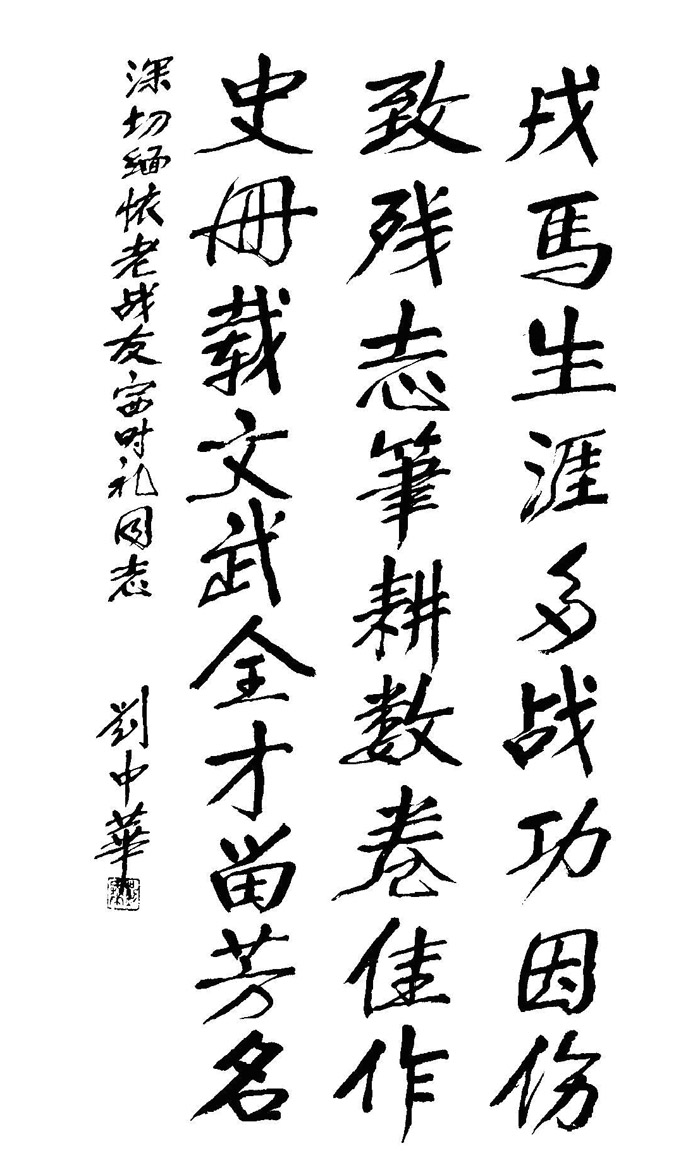 戎馬生涯多战功因伤
致残志筆耕数卷佳作
史册载文武全才留芳名
深切缅怀老战友宫时礼同志
劉中華